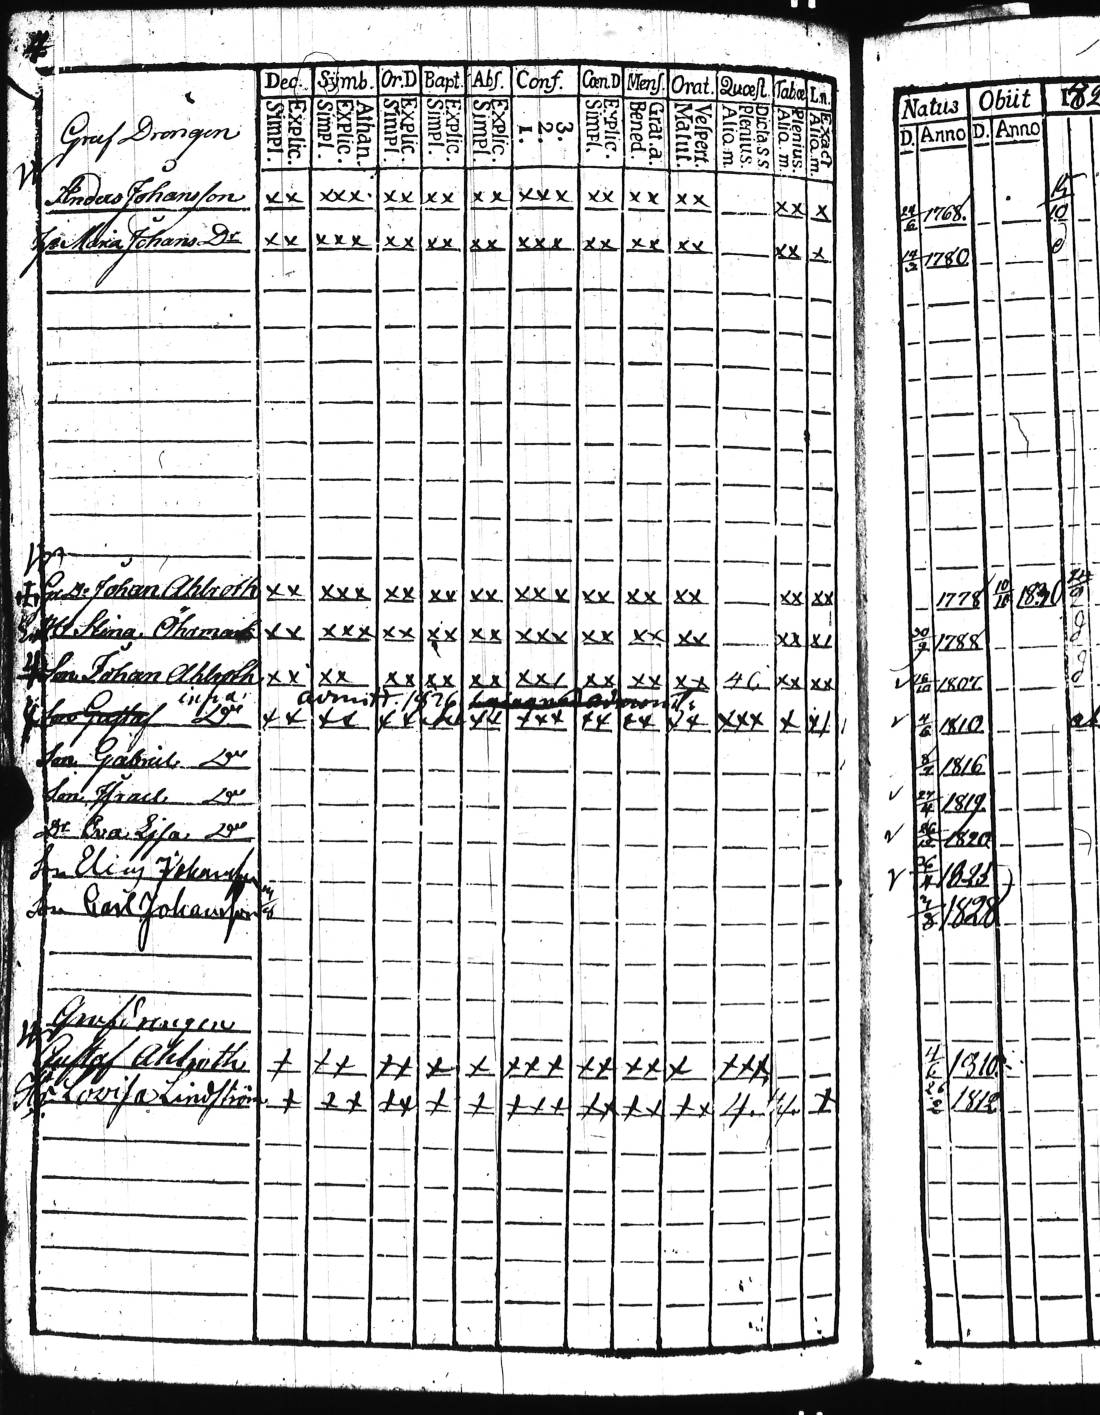 Dec. Symb. Or.D Bapt. Abs. Conf. Cœn.D Mens. Orat. Quœst. Tabœ L.n.
Explic. Simpl. Athan. Explic. Simpl. Explic. Simpl. Explic. Simpl. Explic. Simpl. 3. 2. 1. Explic. Simpl. Grat.a. Bened. Vespert. Matut. plenius. Alio.m. Plenius. Alio.m. Exact Alio.m.
Natus Obiit 182
D. Anno D. Anno
Graf Drängen
Anders Johansson xx xxx xx xx xx xxx xx xx xx xx x 24/6 1768. 15/10
Maria Johans Dr xx xxx xx xx xx xxx xx xx xx xx x 1780
Johan Ahlroth xx xxx xx xx xx xxx xx xx xx xx xx 1778 1830
Stina Öhrmark xx xxx xx xx xx xxx xx xx xx xx xx 30/9 1788
Son Johan Ahlroth xx xx xx xx xx xx xx xx xx 4 xx xx 1807
infra admitt. 1826
Son Gustaf Do xx xx xx xx xx xxx xx xx xx xxx x xx 4/6 1810
Son Gabriel Do 8/7 1816
Son Israel Do 27/4 1819
Dr Eva Lisa Do 1820
Son Elias Johansson 26/4 1825
Son Carl Johansson 1828
Graf Drängen
Gustaf Ahlroth x xx xx x x xxx xx xx x xxx 4/6 1810
Lovisa Lindström x xx xx x x xxx xx xx xx 4. 4. x 26/2 1812